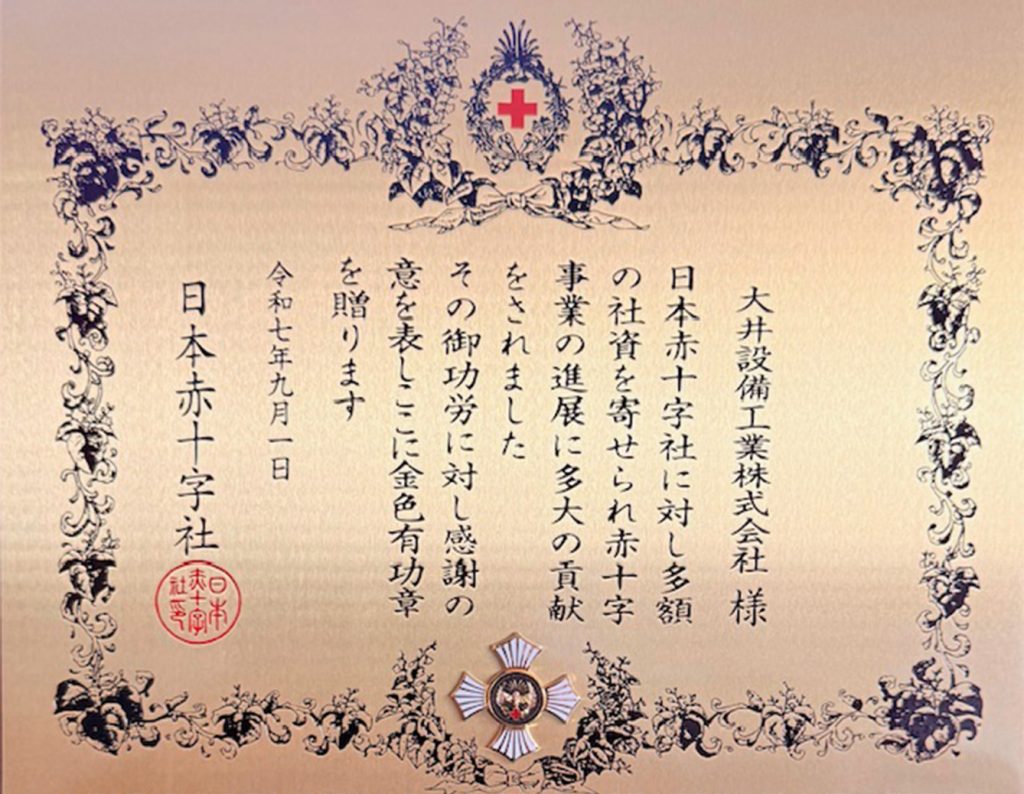 大井設備工業株式会社 様
日本赤十字社に対し多額
の社資を寄せられ赤十字
事業の進展に多大の貢献
をされました
その御功労に対し感謝の
意を表しここに金色有功章
を贈ります
令和七年九月一日
日本赤十字社
日本
赤十字
社印